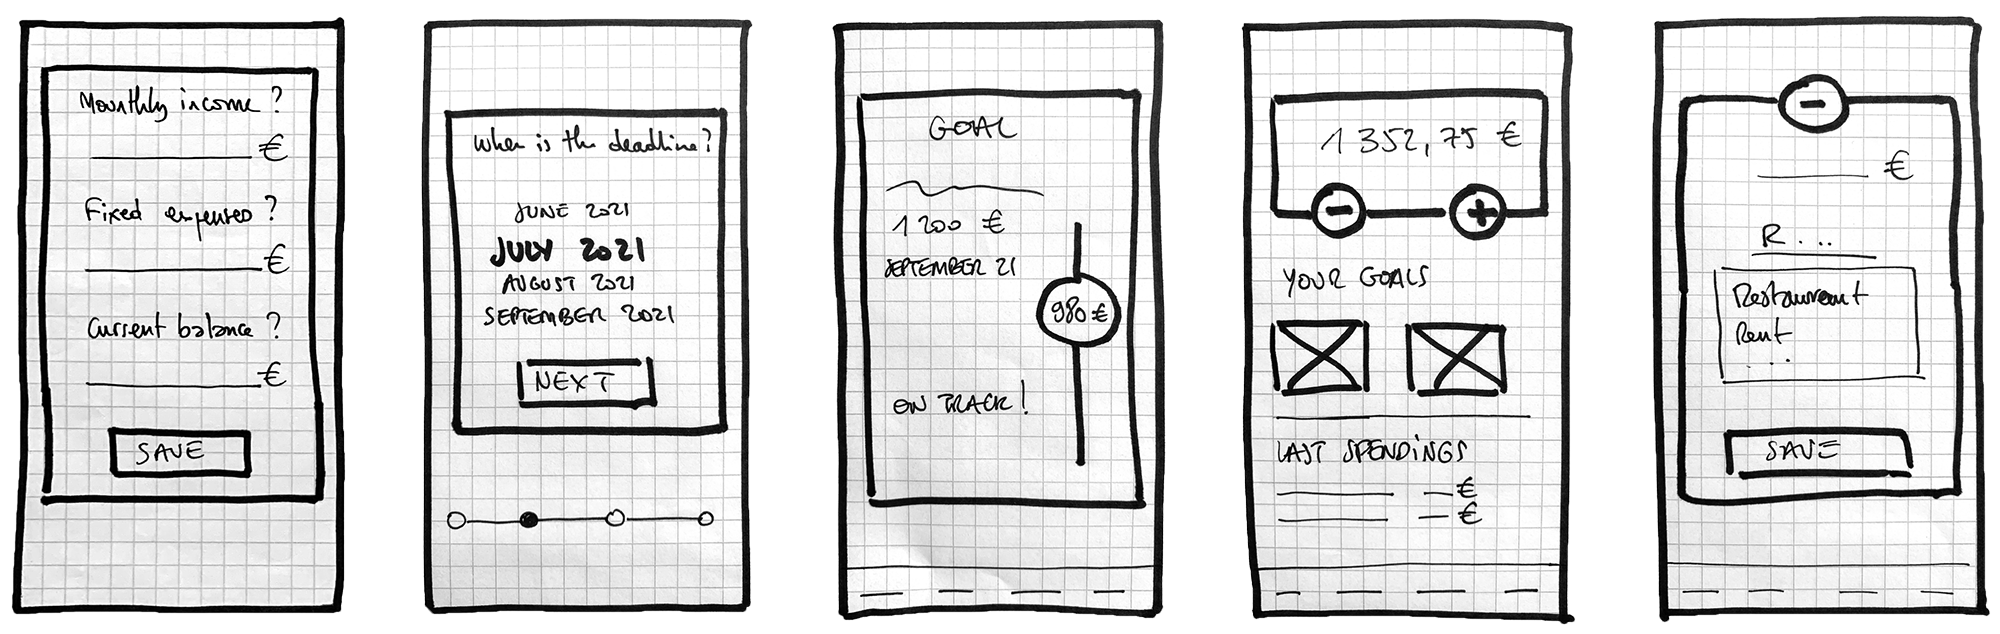 Mounthly income ?
€
Fixed expenses ?
€
Current balance ?
€
SAVE
When is the deadline ?
JUNE 2021
JULY 2021
AUGUST 2021
SEPTEMBER 2021
NEXT
GOAL
1 200 €
SEPTEMBER 21
980 €
ON TRACK !
1 352,75 €
-
+
YOUR GOALS
LAST SPENDINGS
€
€
-
€
R...
Restaurant
Rent
...
SAVE